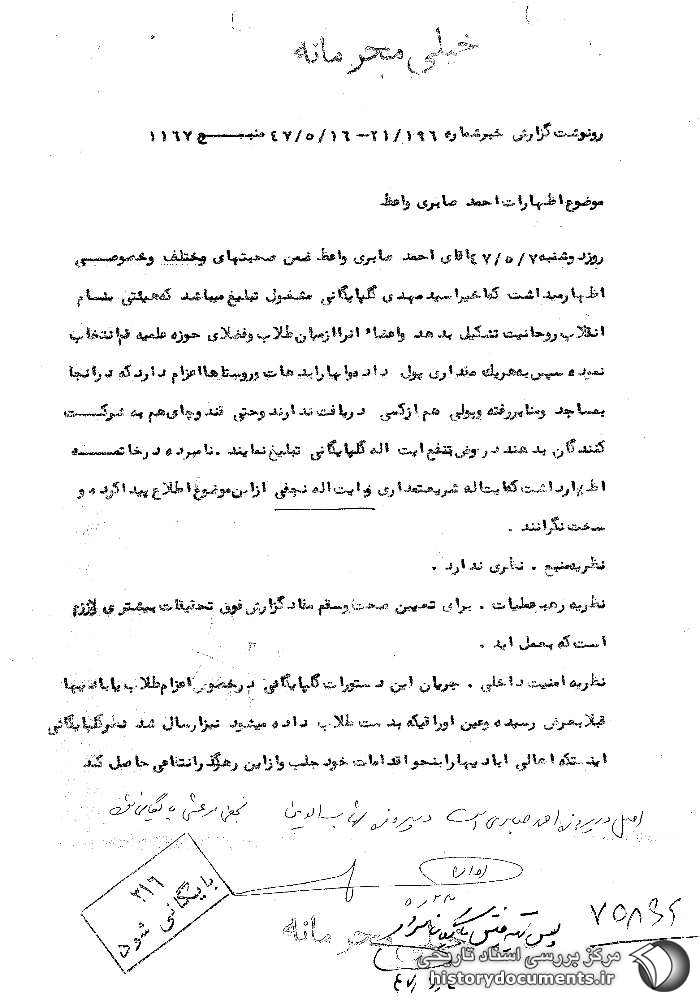 خیلی محرمانه
رونوشت گزارش خبر شماره ۲۱/۱۹۶ – ۴۷/۵/۱۶ منبع ۱۱۶۷
موضوع اظهارات احمد صابری واعظ
روز دوشنبه ۴۷/۵/۷ اقای احمد صابری واعظ ضمن صحبتهای مختلف وخصوصی
اظهار میداشت که اخیرا سید مهدی گلپایگانی مشغول تبلیغ میباشد که هیئتی بنام
انقلاب روحانیت تشکیل بدهد واعضاء انرا از میان طلاب وفضلای حوزه علمیه قم انتخاب
نموده سپس به هریك مقداری پول داده وانها را بدهات وروستاها اعزام دارد که در انجا
بمساجد ومنابر رفته وپولی هم از کسی دریافت ندارند وحتی قند وچای هم به شرکت
کنندگان بدهند در عوض بنفع ایت اله گلپایگانی تبلیغ نمایند . نامبرده در خاتمه
اظهار داشت که ایت اله شریعتمداری و ایت اله نجفی از این موضوع اطلاع پیدا کرده و
سخت نگرانند .
نظریه منبع . نظری ندارد .
نظریه رهبر عملیات . برای تعیین صحت وسقم مفاد گزارش فوق تحقیقات بیشتری لازم
است که بعمل اید .
نظریه امنیت داخلی . جریان این دستورات گلپایگانی در خصوص اعزام طلاب به ابادیها
قبلا بعرض رسیده وعین اوراقیکه بدست طلاب داده میشود نیز ارسال شد نظر گلپایگانی
اینستکه اهالی ابادیها را بنحو اقدامات خود جلب واز این رهگذر انتفاعی حاصل کند
اصل در پرونده احمد صابری است در پرونده
اداره
۵/۲۸
۷۵۸۳۶
۳۱۶
بایگانی شود
خیلی محرمانه
مرکز بررسی اسناد تاریخی
historydocuments.ir